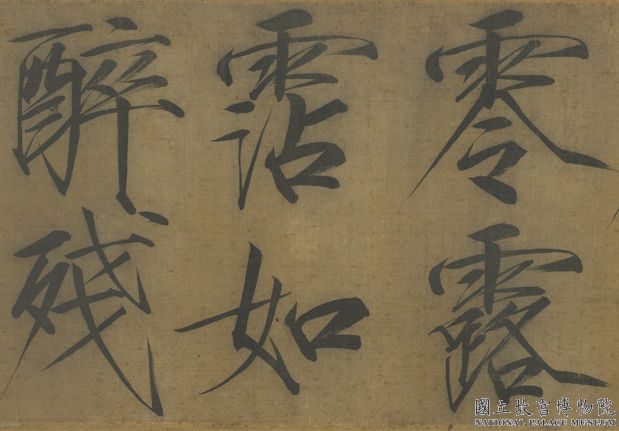 零露
霑如
醉殘
國立故宮博物院
NATIONAL PALACE MUSEUM